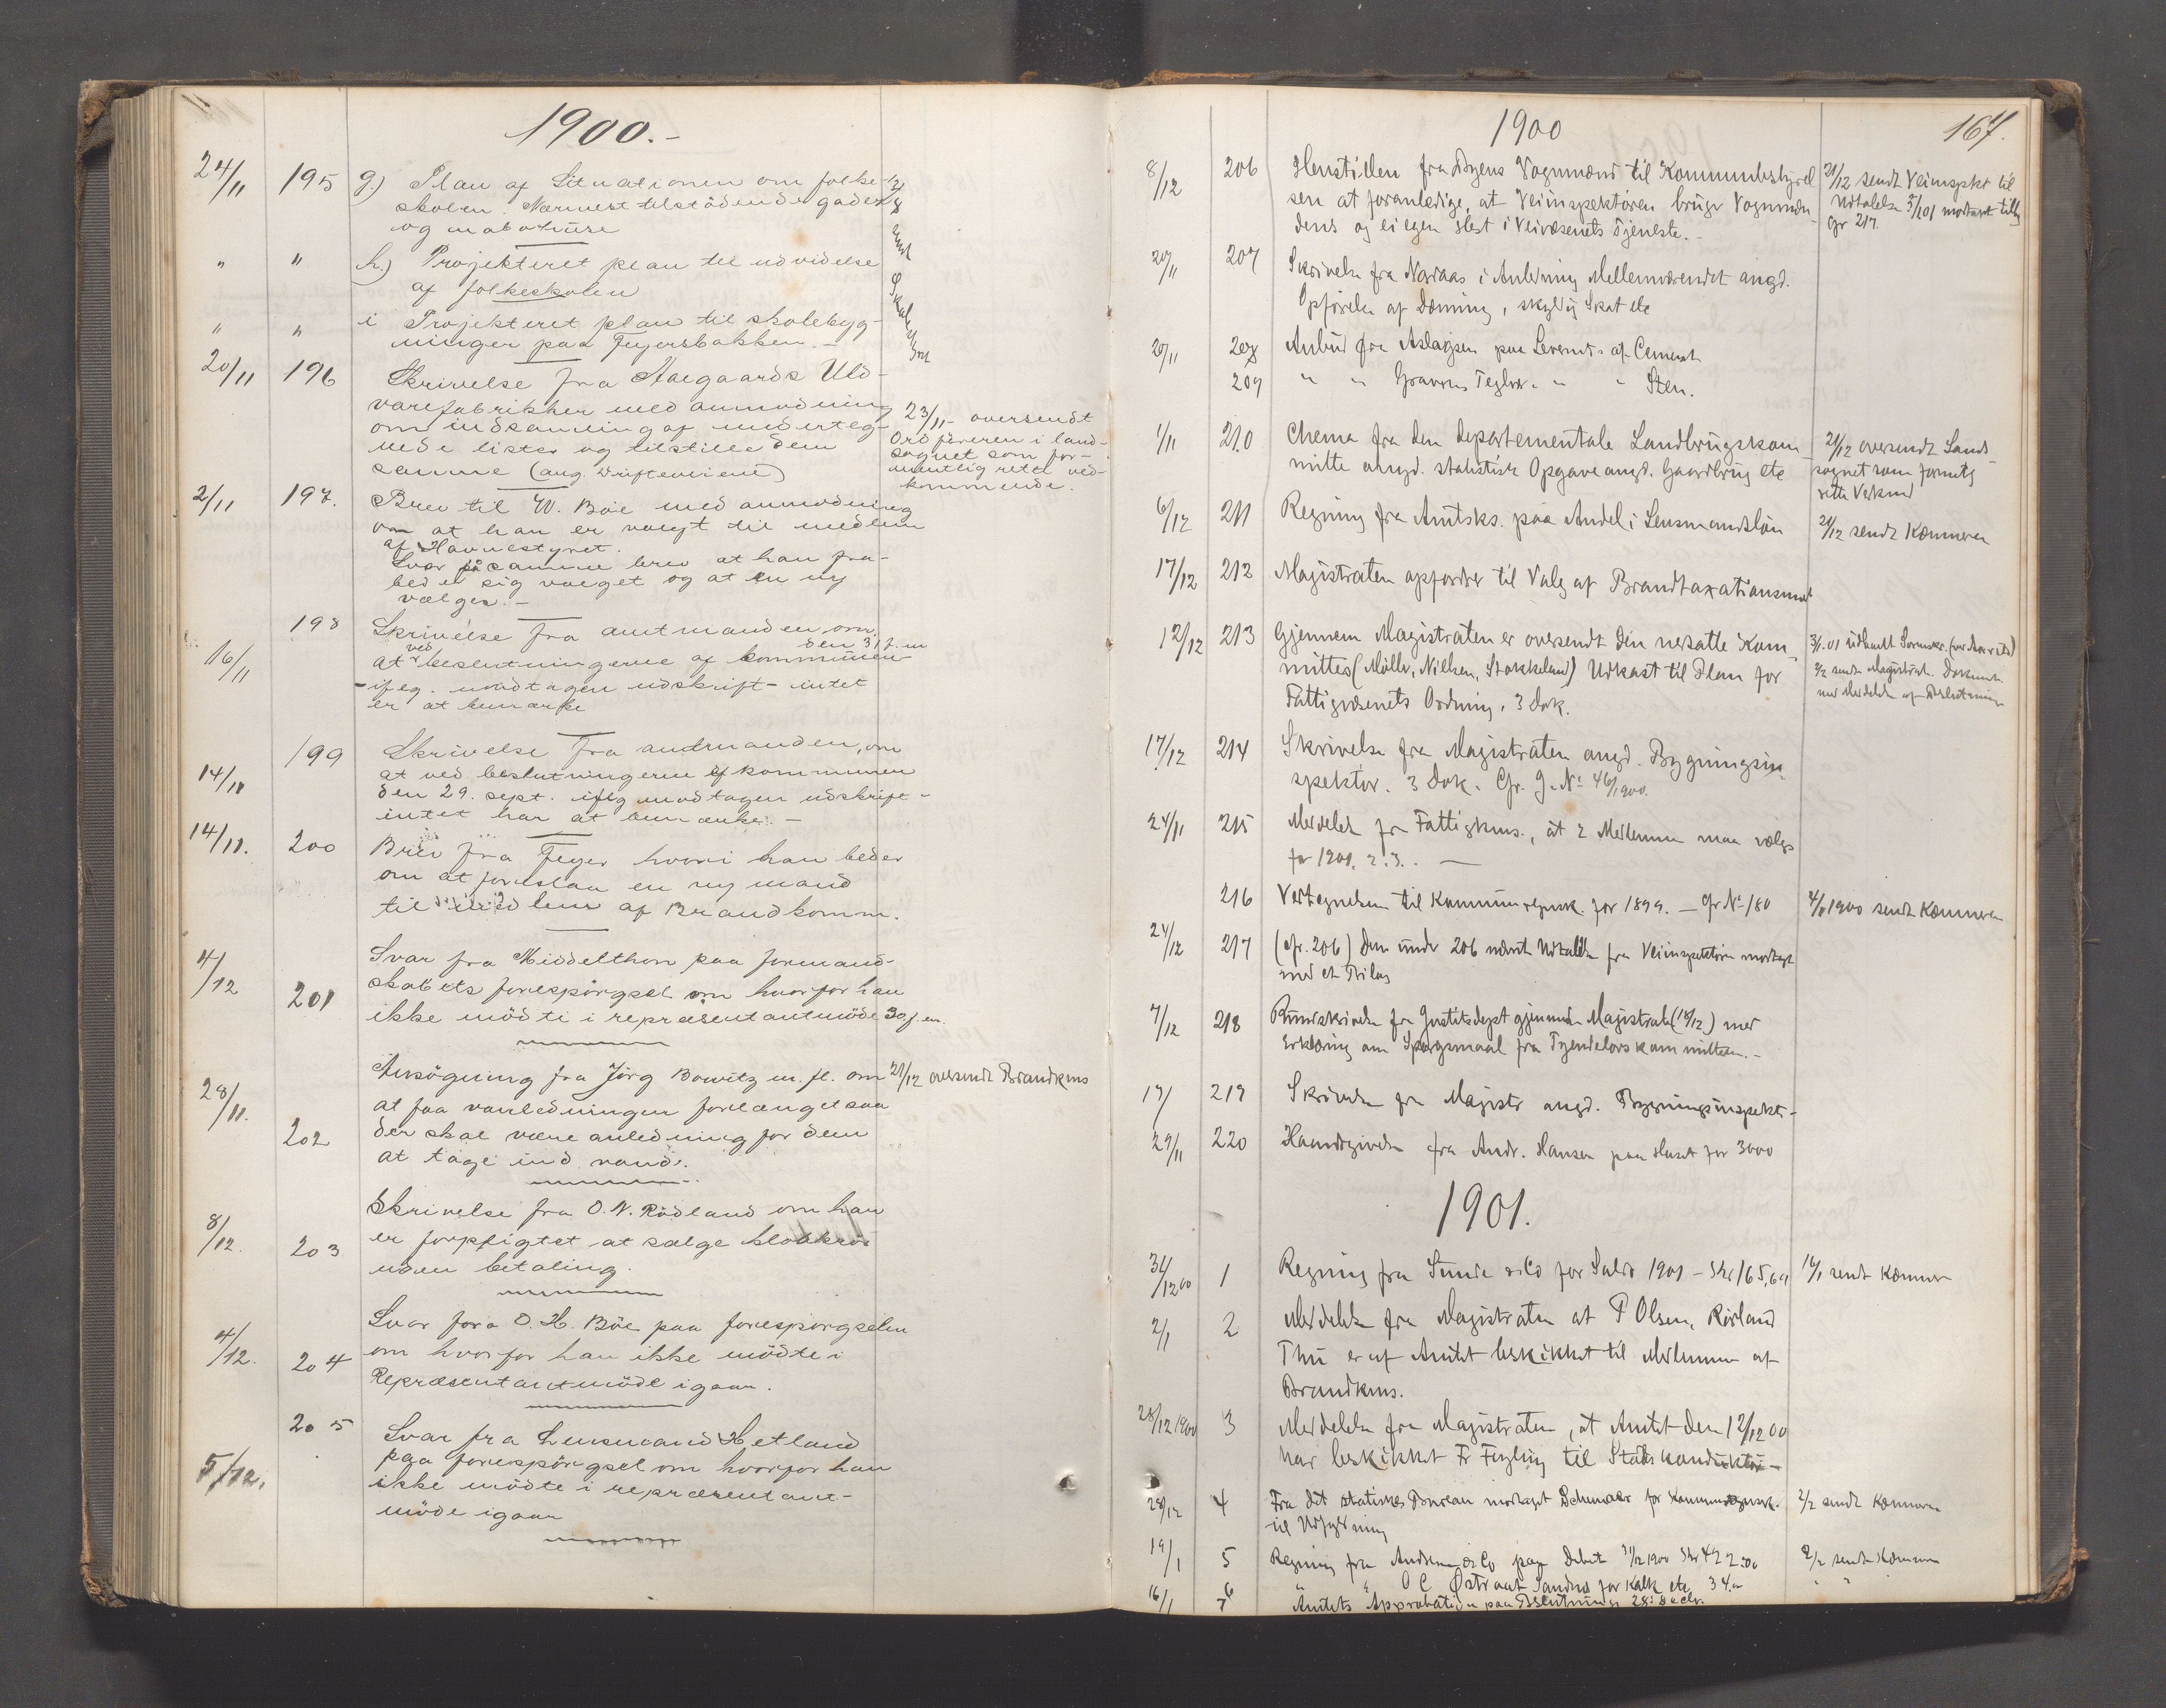 1900.-
24/11 195 g.) Plan af Situationen om folke-
skolen. Nærmest tilstödende gader
og matohuse
" " h.) Projekteret plan til udvidelse
af folkeskolen
" " i Projekteret plan til skolebyg-
ninger paa Feyersbakken.-
20/11 196 Skrivelse fra Aalgaards Uld-
varefabrikker med anmodning
om indsamling af underteg-
nede lister og tilstille dem
samme (ang. Drifteveiene)
23/11 oversendt
Ordföreren i land-
sognet som for-
mentlig rette ved-
kommende.
2/11 197. Brev til W. Böe med anmodning
om at han er valgt til medlem
af Havnestyret.
Svar på samme brev at han fra-
beder sig valget og at en ny
vælges.-
16/11 198 Skrivelse fra amtmanden, om
at ved beslutningerne af kommunen den 31 f. m
ifølg. modtagen udskrift intet
er at bemærke
14/11 199 Skrivelse fra amtmanden, om
at ved beslutningerne af kommunen
den 29. sept. iflg modtagen udskrift-
intet har at bemærke.-
14/11. 200 Brev fra Feyer hvori han beder
om at foreslaa en ny mand
til medlem af Brandkomm.
4/12 201 Svar fra Middelthon paa formand-
skabets forespörgsel om hvorfor han
ikke mödte i repræsentantmöde 30 f. m.
28/11. 202 Ansögning fra Jörg Bowitz m. fl. om
at faa vanledningen forlænget saa
der skal være anledning for dem
at tage ind vand.
21/12 oversendt Brandkms
8/12. 203 Skrivelse fra O. N. Rödland om han
er forpligtet at sælge
uden betaling.
4/12. 204 Svar fora O. H. Böe paa forespörgselen
om hvorfor han ikke mödte i
Repræsentantmöde igaar.
5/12. 205 Svar fra Lensmand Hetland
paa forespörgsel om hvorfor han
ikke mödte i repræsentant-
möde igaar
1900
167.
8/12 206 Henstillen fra Byens Vognmænd til Kommunebestyrel
sen at foranledige, at Veiinspektören bruge Vognmæn-
dens og ei egen Hest i Veivæsenets Tjeneste.-
21/12 sendt Veiinspkt til
Udtalelse 2/1 01 modtaget
Cfr 217.
20/11 207 Skrivelse fra i Anledning Mellemværendet angd.
Opförelse af Dæmning, skyldig Skat etc
20/11 208 Anbud fra Aslagsen paa Leverance af Cement
209 " " Gravren Teglv. " " Sten.
1/11 210 Chema fra den departementale Landbrugskom-
mitte angd. statistisk Opgave angd. Gaardbrug etc
21/12 oversendt Lands-
sognet som formentl
rette Vedkmd
6/12 211 Regning fra Amtsks. paa Andel i Lensmandslön
21/12 sendt Kæmneren
17/12 212 Magistraten opfordrer til Valg af Brandtaxationsmd
12/12 213 Gjennem Magistraten er oversendt den nedsatte Kom-
mittes (Möller, Nielsen, Stokkeland) Udkast til Plan for
Fattigvæsenets Ordning. 3 Dok.
17/12 214 Skrivelse fra Magistraten angd. Bygningsin-
spektör. 3 Dok. Cfr. J. No 46/1900.
24/11 215 Meddelelse fr Fattigkms., at 2 Medlemmer maa vælges
for 1901. 2. 3. —
216 Vedtegnelsen til Kommuneregnsk. for 1899. — cfr No 180
4/1 1900 sendt Kæmneren
24/12 217 (cfr. 206) Den under 206 nævnte Udtalelse fra Veiinspektören modtaget
med et Bilag
7/12 218 Rundskrivelse fra Justitsdept gjennem Magistraten (14/12) med
Erklæring om Spörgsmaal fra Tyendelovskommitteen.-
17/ 219 Skrivelse fra Magistr angd. Bygningsinspekt-
29/11 220 Haandgivelse fra Andr. Hansen paa Huset for 3000
1901.
31/12 00 1 Regning fra Sunde & Co for Saldo 1901 - Kr 165,69
14/1 sendt Kæmner
2/1 2 Meddelelse fra Magistraten at P Olsen, Rörland
Thu er af Amtet beskikket til Medlemmer af
Brandkms.
28/12 1900 3 Meddelelse fra Magistraten, at Amtet den 12/12 00
har beskikket Fr Feyling til Stadskonduktör-
28/12 4 Fra det statistiske Bureau modtaget Schemaer for Kommuneregnsk.
til Udfyldning
2/2 sendt Kæmneren
19/1 5 Regning fra Andersen & Co paa Debet 31/12 1900 Kr 422.00
2/2 sendt Kæmner
16/1 6 " " O C Østraat Sandnes for Kalk etc 34.-
" "
7 Amtets Approbation paa Beslutning 28: Decbr.